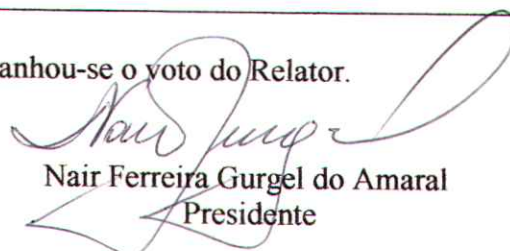 anhou-se o voto do Relator.
Nair Gurgel
Nair Ferreira Gurgel do Amaral
Presidente